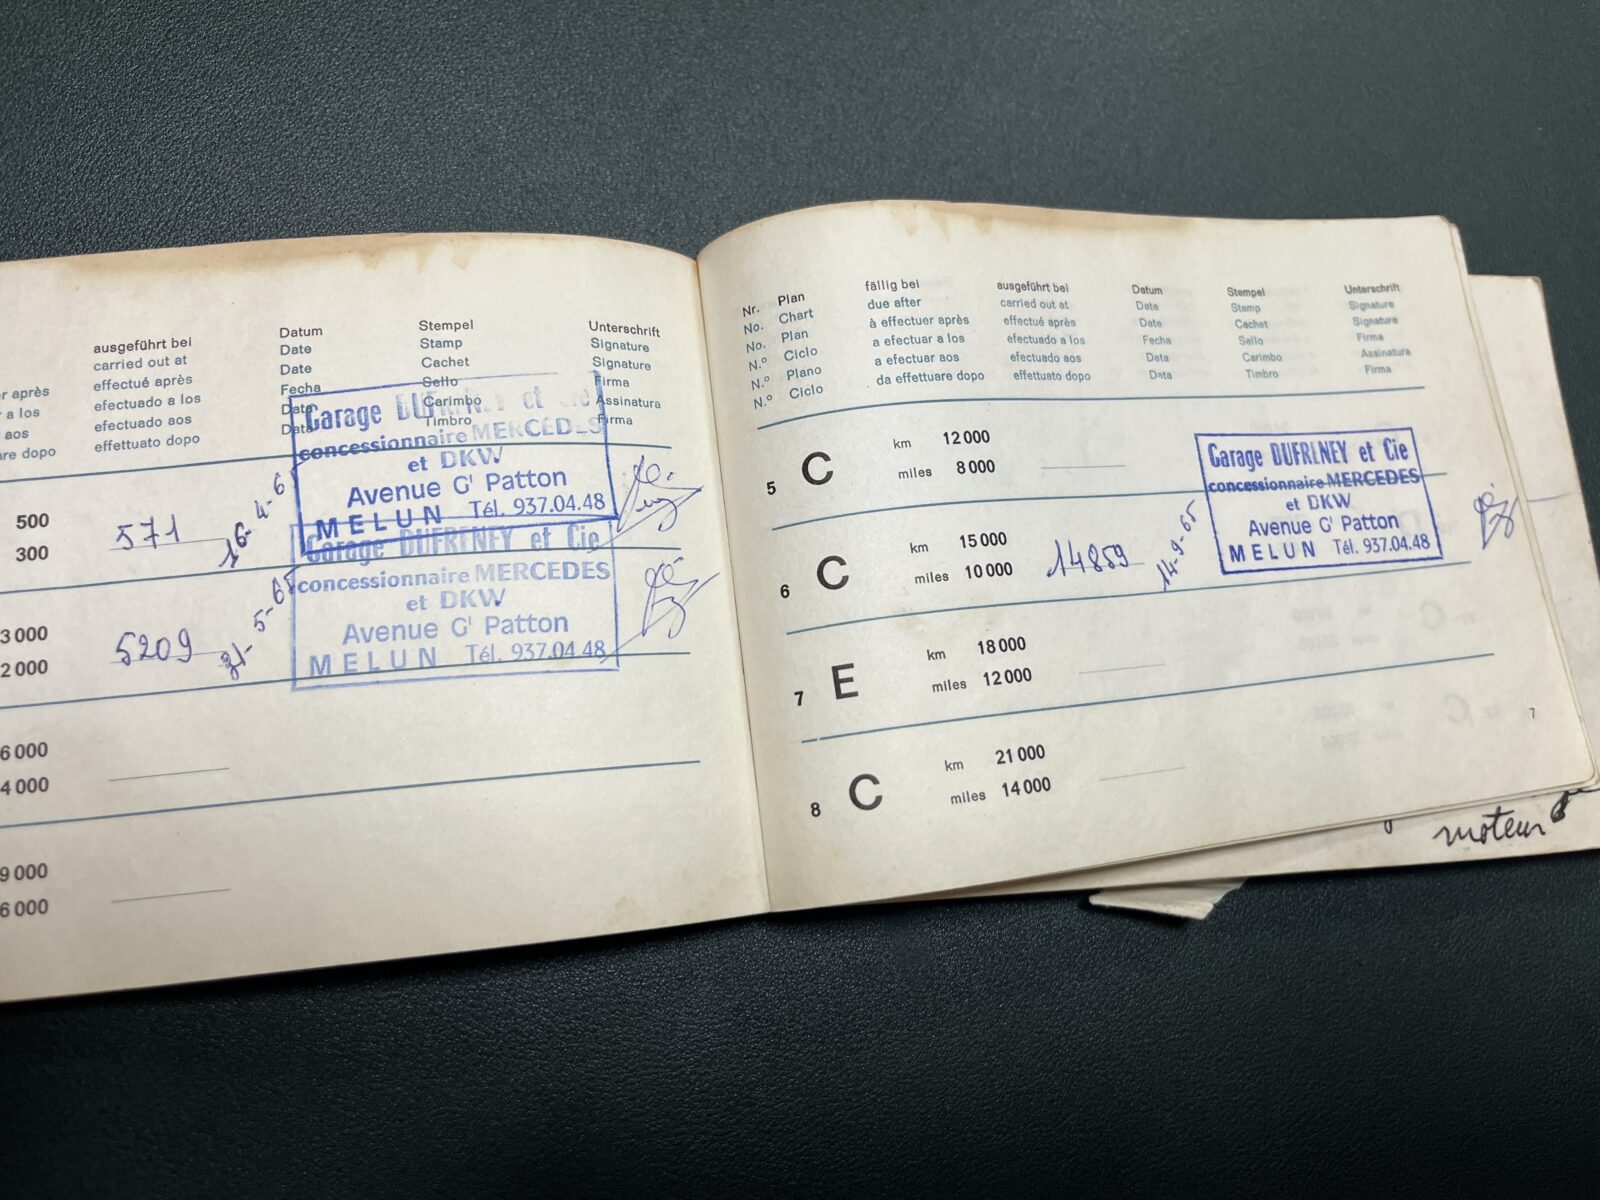 ausgeführt bei Datum Stempel Unterschrift
carried out at Date Stamp Signature
er après effectué après Date Cachet Signature
a los efectuado a los Fecha Sello Firma
aos efectuado aos Data Carimbo Assinatura
re dopo effettuato dopo Data Timbro Firma
Garage DUFRENEY et Cie
concessionnaire MERCEDES
et DKW
Avenue Gl Patton
MELUN Tél. 937.04.48
500
300
571
16-4-6
Garage DUFRENEY et Cie
concessionnaire MERCEDES
et DKW
Avenue Gl Patton
MELUN Tél. 937.04.48
3 000
2 000
5209
31-5-65
6 000
4 000
9 000
6 000
Nr. Plan fällig bei ausgeführt bei Datum Stempel Unterschrift
No. Chart due after carried out at Date Stamp Signature
No. Plan à effectuer après effectué après Date Cachet Signature
N.º Ciclo a efectuar a los efectuado a los Fecha Sello Firma
N.º Plano a efectuar aos efectuado aos Data Carimbo Assinatura
N.º Ciclo da effettuare dopo effettuato dopo Data Timbro Firma
5 C km 12 000
miles 8 000
Garage DUFRENEY et Cie
concessionnaire MERCEDES
et DKW
Avenue Gl Patton
MELUN Tél. 937.04.48
6 C km 15 000
miles 10 000
14859
14-9-65
7 E km 18 000
miles 12 000
8 C km 21 000
miles 14 000
7
moteur